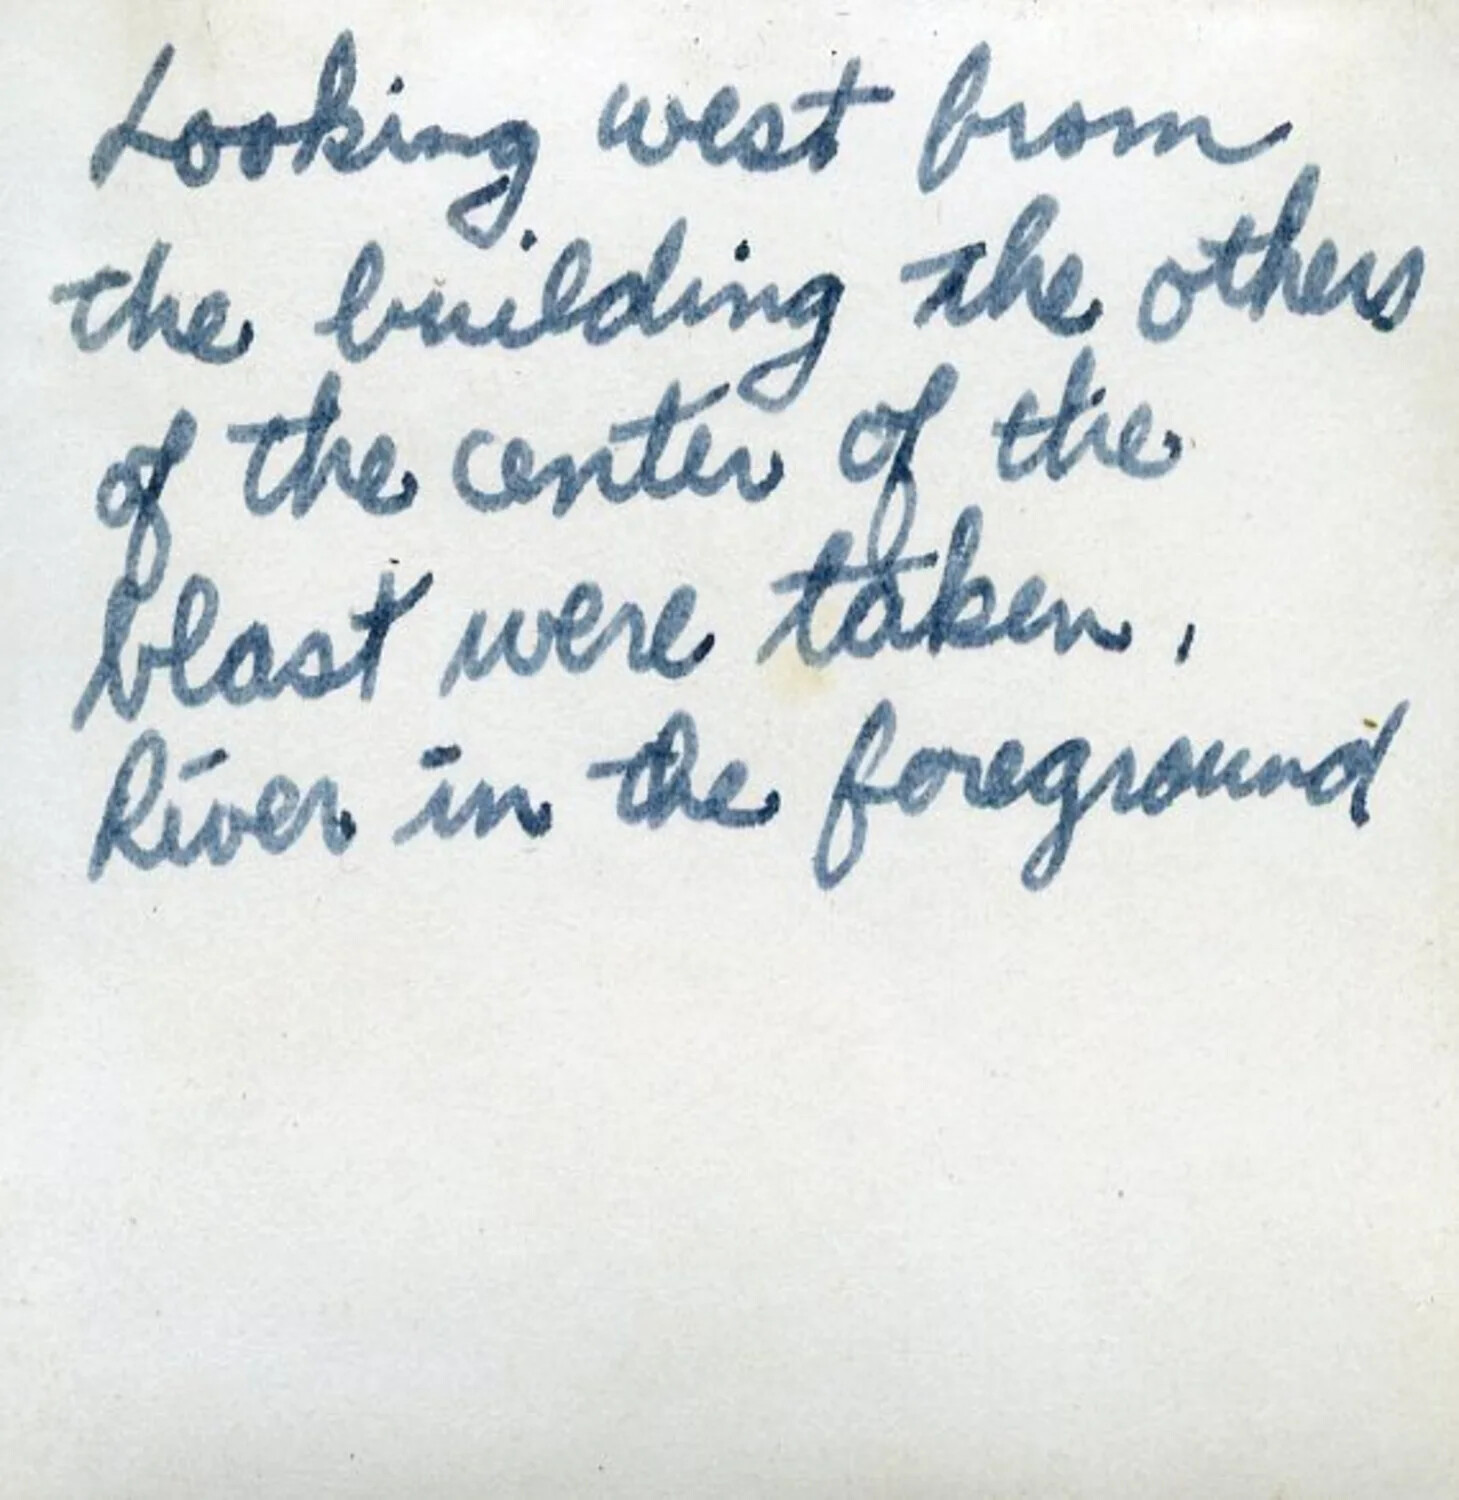 Looking west from
the building the others
of the center of the
blast were taken.
River in the foreground